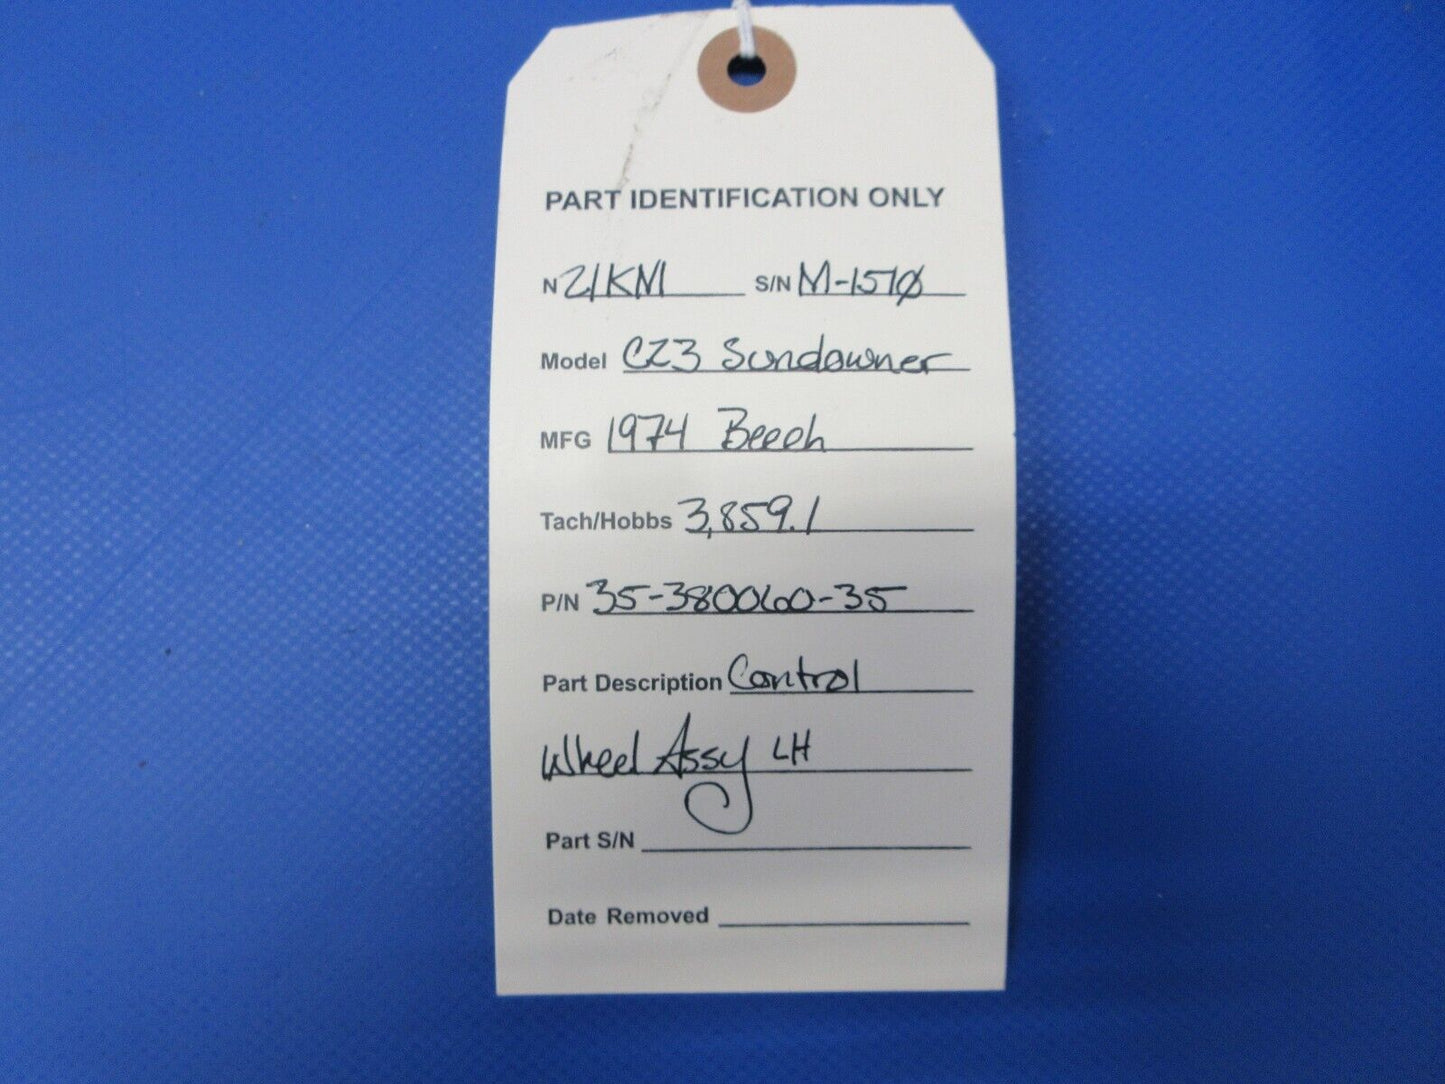 PART IDENTIFICATION ONLY
N 21KM S/N M-1510
Model C23 Sundowner
MFG 1974 Beech
Tach/Hobbs 3,859.1
P/N 35-380060-35
Part Description Control
Wheel Assy LH
Part S/N
Date Removed